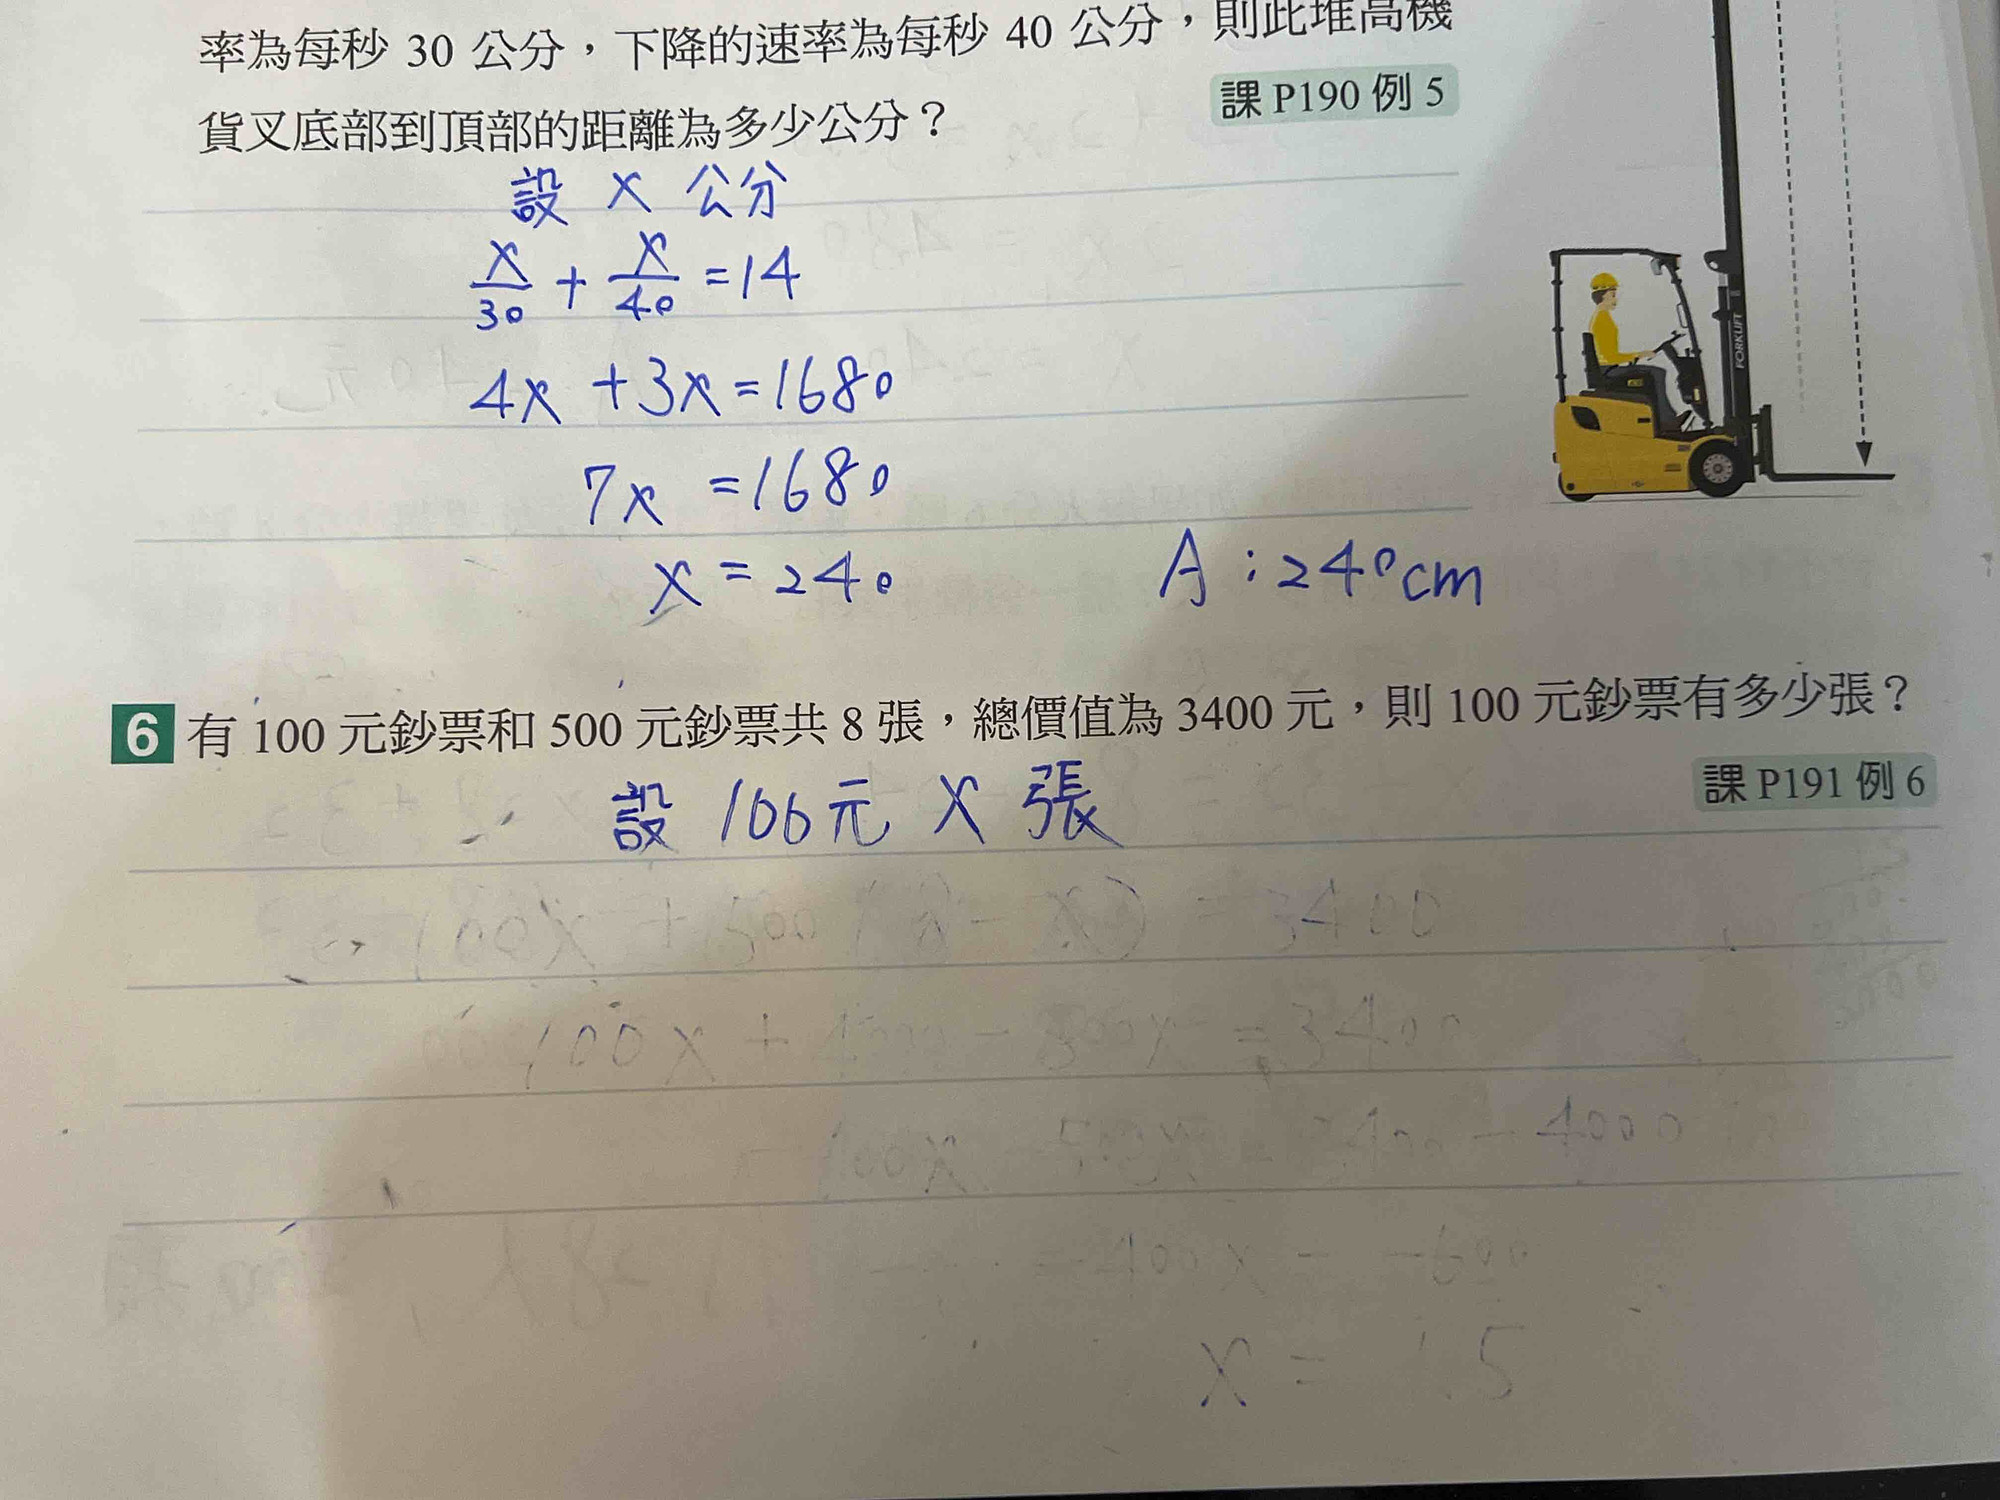 率為每秒 30 公分，下降的速率為每秒 40 公分，則此堆高機
貨叉底部到頂部的距離為多少公分？
課 P190 例 5
設 x 公分
x/30 + x/40 = 14
4x + 3x = 1680
7x = 1680
x = 240
A : 240cm
FORKLIFT
6 有 100 元鈔票和 500 元鈔票共 8 張，總價值為 3400 元，則 100 元鈔票有多少張？
課 P191 例 6
設 100元 x 張
100x + 500(8 - x) = 3400
100x + 4000 - 500x = 3400